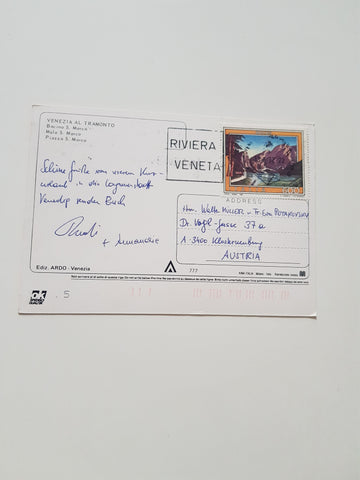 VENEZIA AL TRAMONTO
Bacino S. Marco
Molo S. Marco
Piazza S. Marco
RIVIERA
VENETA
Schöne Grüße von unserem Kurz-
urlaub in die Lagunenstadt
Venedig senden Euch
Rudi
+ Annemarie
ADDRESS
Hrn. Walter MÜLLER u. Fr. Eva
Dr. Vogl-Gasse 37a
A-3400 Klosterneuburg
AUSTRIA
Ediz. ARDO - Venezia
777
5